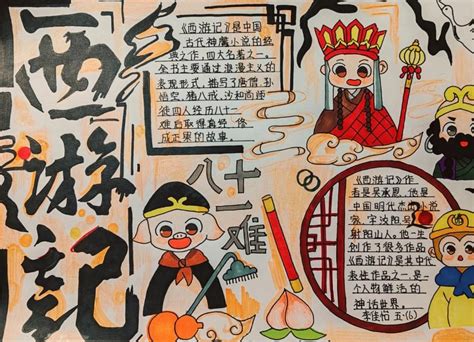 西
游
記
《西游记》是中国
古代神魔小说的经
典之作,四大名著之一,
全书主要通过浪漫主义的
表现形式,描写了唐僧、孙
悟空、猪八戒、沙和尚师
徒四人经历八十一
难后取得真经,修
成正果的故事.
八十
一难
《西游记》作
者是吴承恩,他是
中国明代杰出小说
家,字汝阳,号
射阳山人,他一生
创作了很多作品
《西游记》是其中代
表性作品之一,是一
个人物鲜活的
神话世界.
李佳怡 五·(6)